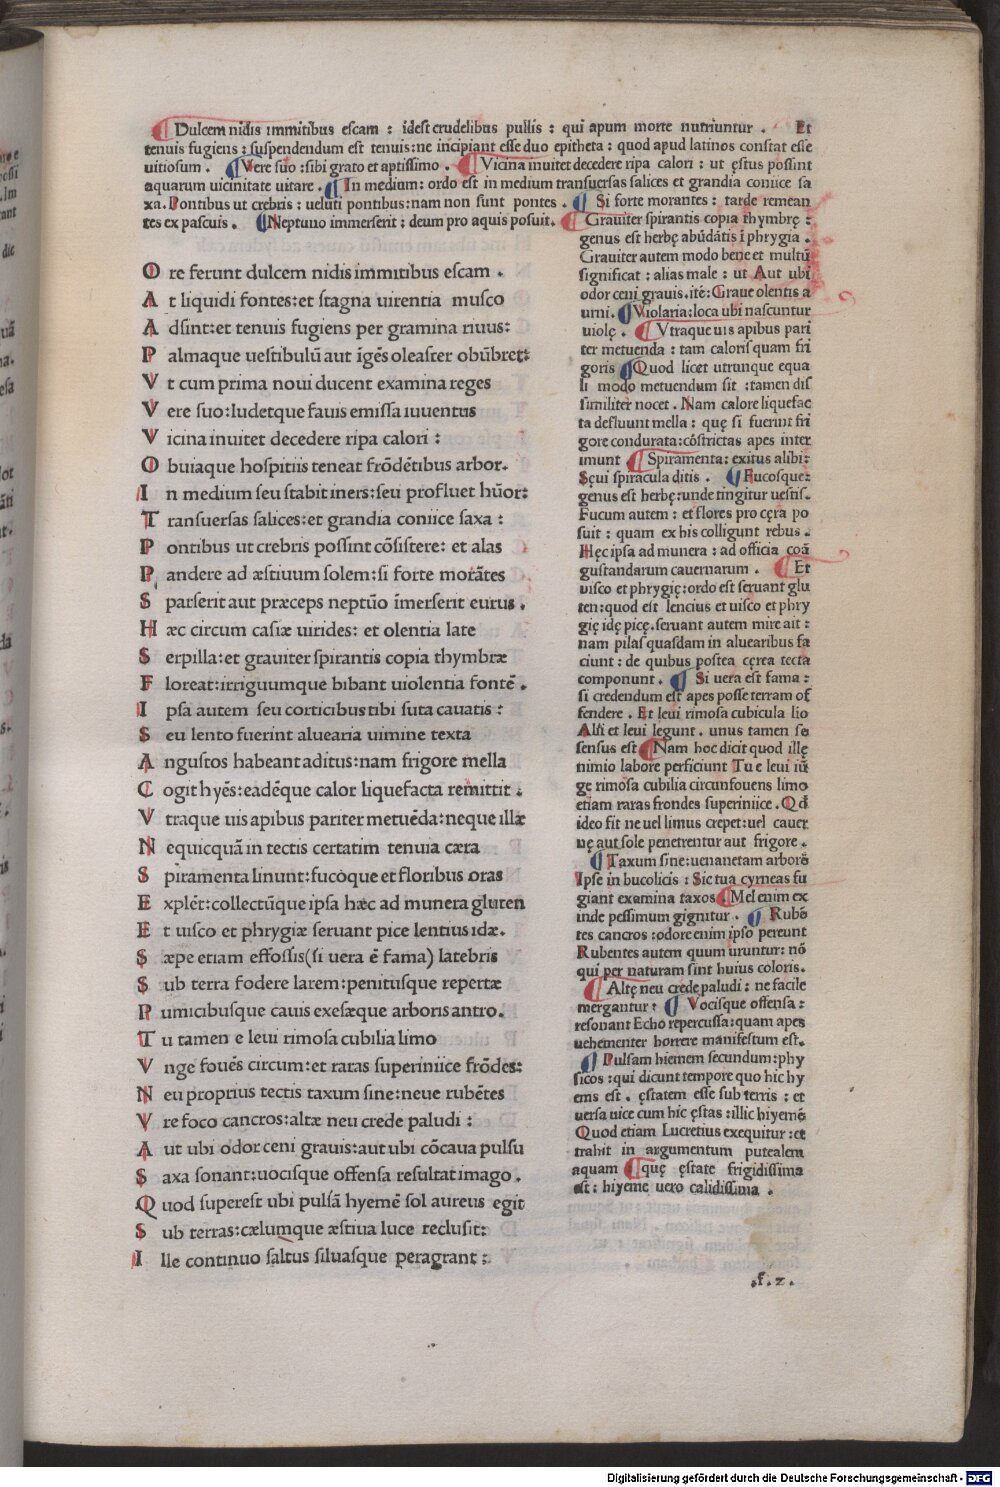 Dulcem nidis immitibus escam : idest crudelibus pullis : qui apum morte nutriuntur . Et
tenuis fugiens : suspendendum est tenuis: ne incipiant esse duo epitheta : quod apud latinos constat esse
uitiosum . Vere suo : sibi grato et aptissimo . Vicina inuitet decedere ripa calori : ut ęstus possint
aquarum uicinitate uitare . In medium : ordo est in medium transuersas salices et grandia coniice sa
xa. Pontibus ut crebris : ueluti pontibus: nam non sunt pontes . Si forte morantes : tarde remean
tes ex pascuis . Neptuno immerserit : deum pro aquis posuit. Grauiter spirantis copia thymbrę :
genus est herbę abūdātis ī phrygia .
Grauiter autem modo bene et multū
significat : alias male : ut Aut ubi
odor ceni grauis. itē: Graue olentis a
urni. Violaria: loca ubi nascuntur
uiolę . Vtraque uis apibus pari
ter metuenda : tam caloris quam fri
goris Quod licet utrunque equa
li modo metuendum sit : tamen dis
similiter nocet . Nam calore liquefac
ta defluunt mella : quę si fuerint fri
gore condurata: cōstrictas apes inter
imunt Spiramenta: exitus alibi:
Sęui spiracula ditis . Fucosque:
genus est herbę: unde tingitur uestis.
Fucum autem : et flores pro cęra po
suit : quam ex his colligunt rebus .
Hęc ipsa ad munera : ad officia coā
gustandarum cauernarum . Et
uisco et phrygię: ordo est seruant glu
ten: quod est lencius et uisco et phry
gię idę picę. seruant autem mire ait :
nam pilas quasdam in aluearibus fa
ciunt : de quibus postea cęrea tecta
componunt . Si uera est fama :
si credendum est apes posse terram of
fendere . Et leui rimosa cubicula lio
Alsi et leui legunt . unus tamen se
sensus est Nam hoc dicit quod illę
nimio labore perficiunt Tu e leui iū
gę rimosa cubilia circunfouens limo
etiam raras frondes superiniice . Qd
ideo fit ne uel limus crepet: uel cauer
nę aut sole penetrentur aut frigore .
Taxum sine: uenanetam arborē
Ipse in bucolicis : Sic tua cyrneas fu
giant examina taxos Mel enim ex
inde pessimum gignitur . Rubē
tes cancros : odore enim ipso pereunt
Rubentes autem quum uruntur: nō
qui per naturam sint huius coloris.
Altę neu crede paludi : ne facile
mergantur: Vocisque offensa :
resonant Echo repercussa: quam apes
uehementer horrere manifestum est.
Pulsam hiemem secundum: phy
sicos : qui dicunt tempore quo hic hy
ems est . ęstatem esse sub terris : et
uersa uice cum hic ęstas : illic hiyemē
Quod etiam Lucretius exequitur : et
trahit in argumentum putealem
aquam quę ęstate frigidissima
est : hiyeme uero calidissima .
O re ferunt dulcem nidis immitibus escam .
A t liquidi fontes: et stagna uirentia musco
A dsint: et tenuis fugiens per gramina riuus:
P almaque uestibulū aut īgēs oleaster obūbret:
V t cum prima noui ducent examina reges
V ere suo: ludetque fauis emissa iuuentus
V icina inuitet decedere ripa calori :
O buiaque hospitiis teneat frōdētibus arbor.
I n medium seu stabit iners: seu profluet hūor:
T ransuersas salices: et grandia coniice saxa :
P ontibus ut crebris possint cōsistere: et alas
P andere ad æstiuum solem: si forte morātes
S parserit aut præceps neptūo īmerserit eurus .
H æc circum casiæ uirides: et olentia late
S erpilla: et grauiter spirantis copia thymbræ
F loreat: irriguumque bibant uiolentia fontē .
I psa autem seu corticibus tibi suta cauatis :
S eu lento fuerint aluearia uimine texta
A ngustos habeant aditus: nam frigore mella
C ogit hyēs: eadēque calor liquefacta remittit .
V traque uis apibus pariter metuēda: neque illæ
N equicquā in tectis certatim tenuia cæra
S piramenta linunt: fucoque et floribus oras
E xplēt: collectūque ipsa hæc ad munera gluten
E t uisco et phrygiæ seruant pice lentius idæ.
S æpe etiam effossis(si uera ē fama) latebris
S ub terra fodere larem: penitusque repertæ
P umicibusque cauis exesæque arboris antro.
T u tamen e leui rimosa cubilia limo
V nge fouēs circum: et raras superiniice frōdes:
N eu proprius tectis taxum sine: neue rubētes
V re foco cancros: altæ neu crede paludi :
A ut ubi odor ceni grauis: aut ubi cōcaua pulsu
S axa sonant: uocisque offensa resultat imago .
Q uod superest ubi pulsā hyemē sol aureus egit
S ub terras: cælumque æstiua luce reclusit:
I lle continuo saltus siluasque peragrant :
.f.2.
Digitalisierung gefördert durch die Deutsche Forschungsgemeinschaft - DFG